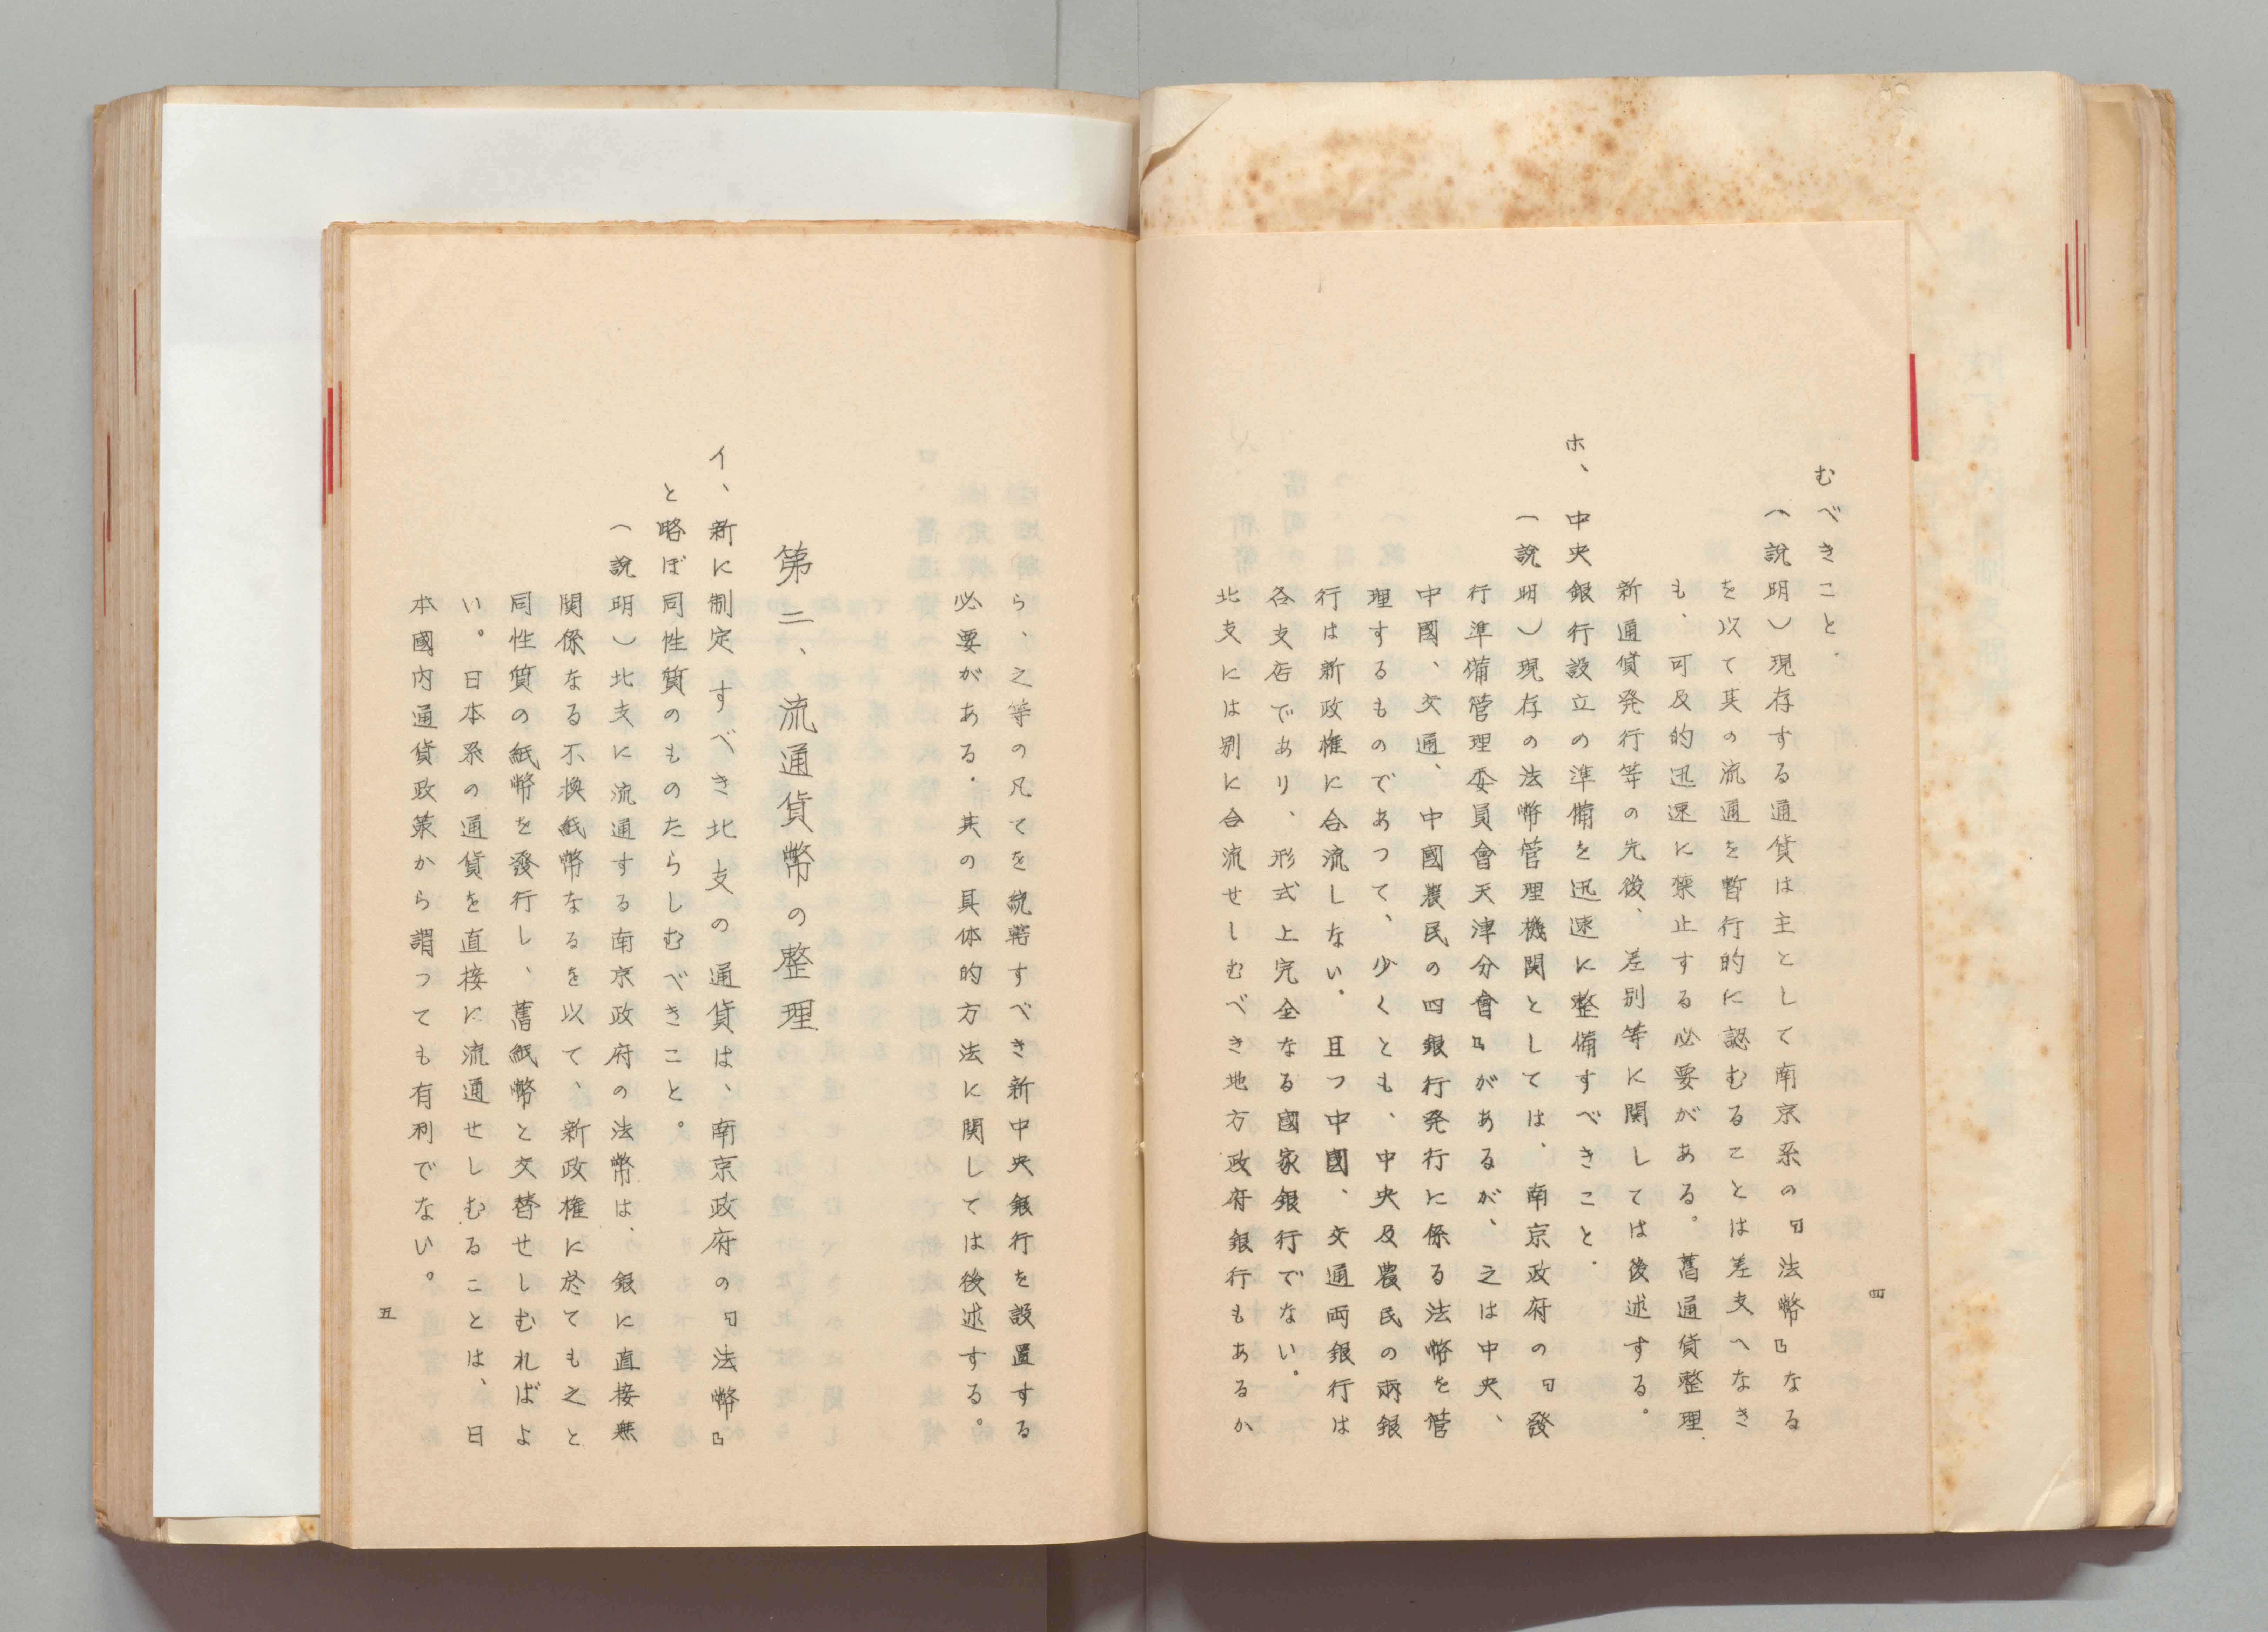 むべきこと.
(説明)現存する通貨は主として南京系の『法幣』なる
を以て其の流通を暫行的に認むることは差支へなき
も、可及的迅速に禁止する必要がある。舊通貨整理.
新通貨発行等の先後、差別等に関しては後述する。
ホ、中央銀行設立の準備を迅速に整備すべきこと.
(説明)現存の法幣管理機関としては、南京政府の『發
行準備管理委員會天津分會』があるが、之は中央、
中國、交通、中國農民の四銀行発行に係る法幣を管
理するものであつて、少くとも、中央及農民の兩銀
行は新政権に合流しない.且つ中國、交通両銀行は
各支店であり、形式上完全なる國家銀行でない.
北支には别に合流せしむべき地方政府銀行もあるか
四
ら、之等の凡てを統轄すべき新中央銀行を設置する
必要がある.其の具体的方法に関しては後述する。
第二、流通貨幣の整理
イ、新に制定すべき北支の通貨は、南京政府の『法幣』
と略ぼ同性質のものたらしむべきこと。
(説明)北支に流通する南京政府の法幣は、銀に直接無
関係なる不換紙幣なるを以て、新政権に於ても之と
同性質の紙幣を發行し、舊紙幣と交替せしむればよ
い。日本系の通貨を直接に流通せしむることは、日
本國内通貨政策から謂つても有利でない。
五